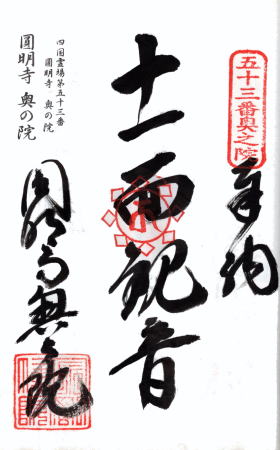 五十三番奥之院
奉納
十一面観音
四国霊場第五十三番
圓明寺 奥の院
圓明寺 奥の院
圓明寺奥之院